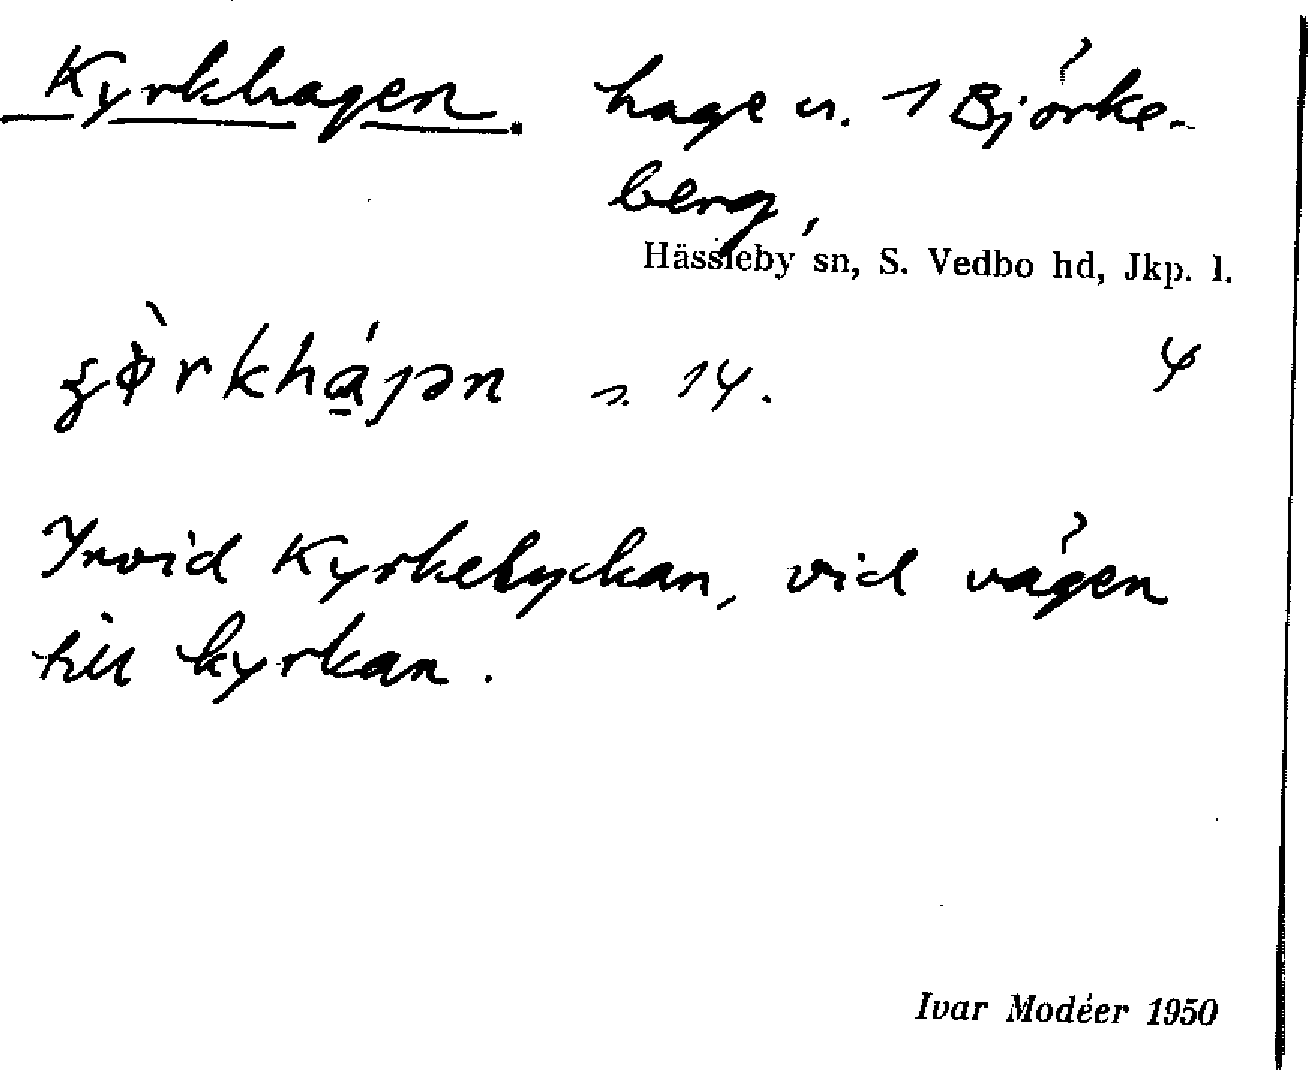 Kyrkhagen. hage u. 1 Björke-
berg,
Hässleby sn, S. Vedbo hd, Jkp. l.
14. 4
Invid Kyrkelyckan, vid vägen
till kyrkan.
Ivar Modéer 1950